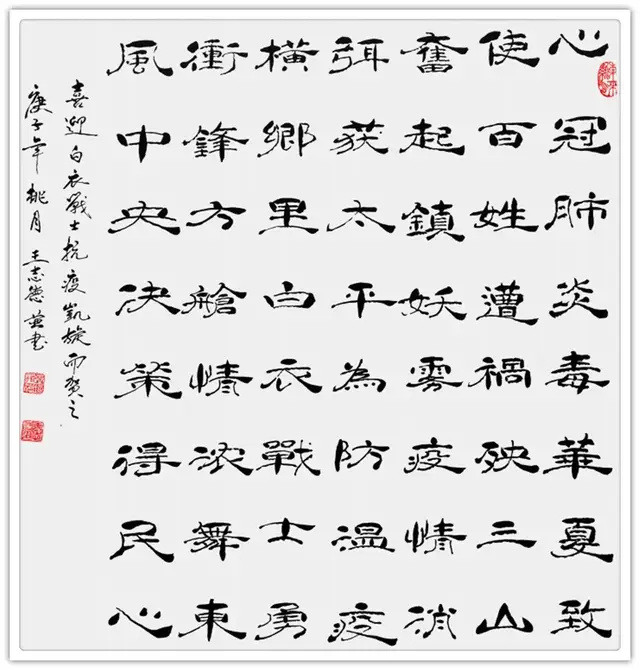 心冠肺炎毒華夏致
使百姓遭禍殃三山
奮起鎮妖雾疫情消
弭获太平為防温疫
横鄉里白衣戰士勇
衝鋒方艙情浓舞東
風中央决策得民心
喜迎白衣戰士抗疫凱旋而贺之
庚子年桃月 王志德並书